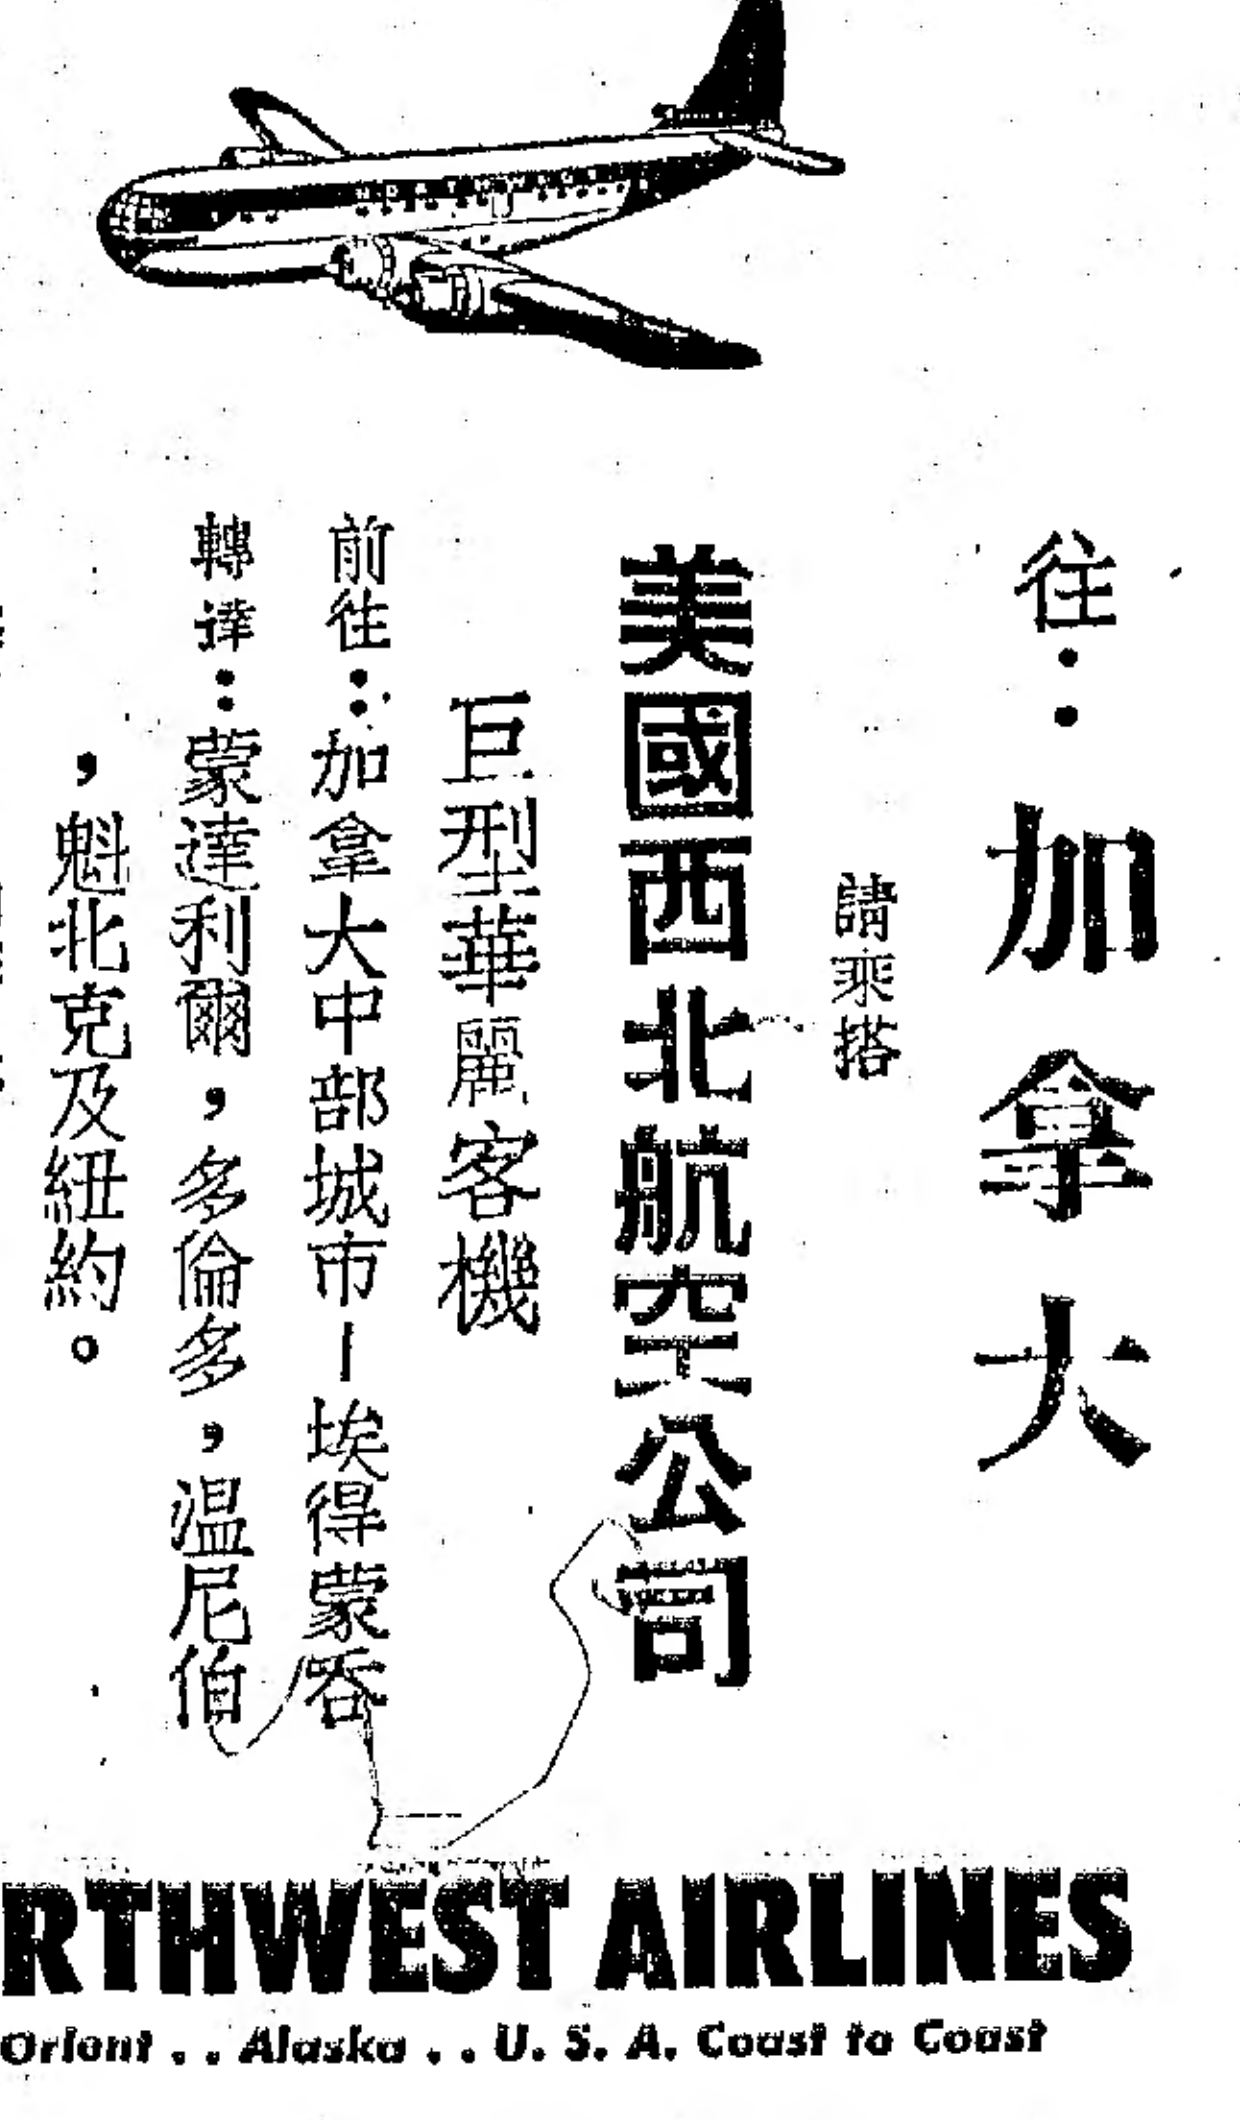 往：加拿大
請乘搭
美國西北航空公司
巨型華麗客機
前往：加拿大中部城市－埃得蒙吞
轉達：蒙達利爾，多倫多，温尼伯
，魁北克及紐約。
RTHWEST AIRLINES
Orient . . Alaska . . U. S. A. Coast to Coast